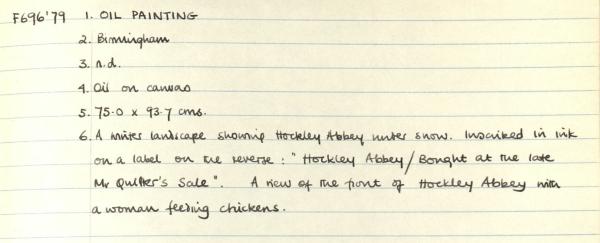 F696'79 1. OIL PAINTING
2. Birmingham
3. n.d.
4. Oil on canvas
5. 75.0 x 93.7 cms.
6. A winter landscape showing Hockley Abbey under snow. Inscribed in ink
on a label on the reverse : "Hockley Abbey / Bought at the late
Mr Quilter's Sale". A view of the front of Hockley Abbey with
a woman feeding chickens.